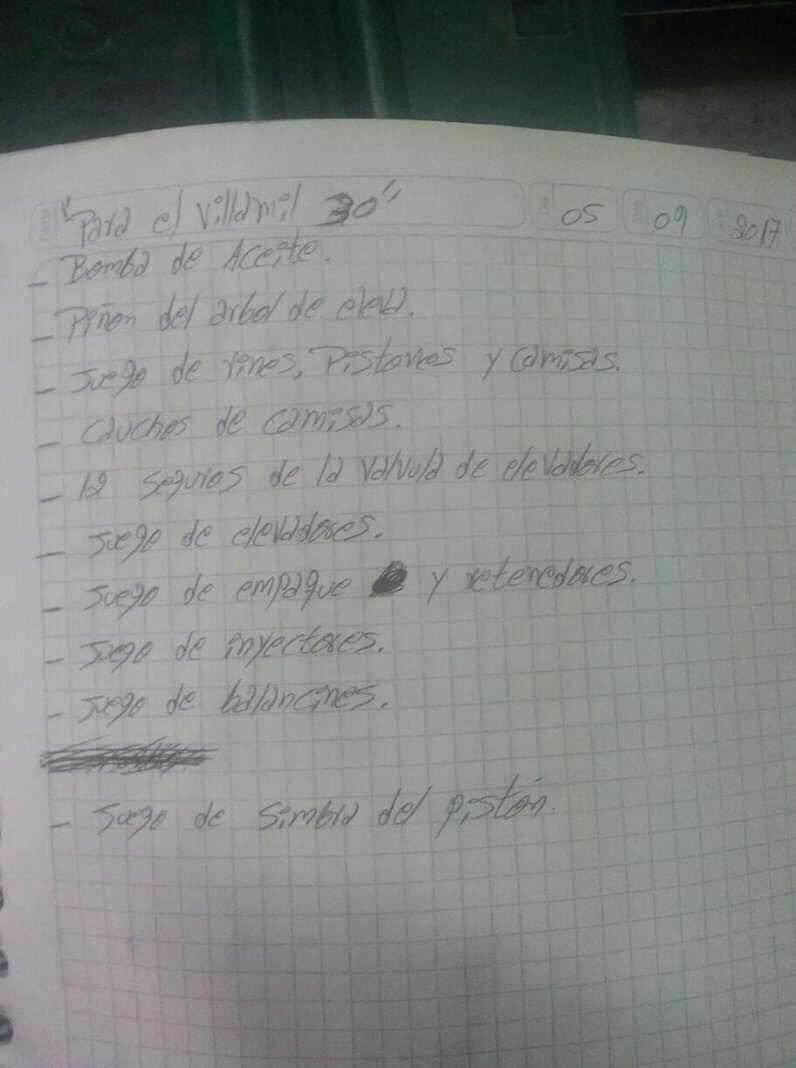 "Para el Villamil 30" 05 09 2017
- Bomba de Aceite.
- Piñon del arbol de elev.
- Juego de rines, Pistones y camisas.
- Cauchos de camisas.
- 12 seguros de la valvula de elevadores.
- Juego de elevadores.
- Juego de empaque y retenedores.
- Juego de inyectores.
- Juego de balancines.
- Juego de simbra del pistón.